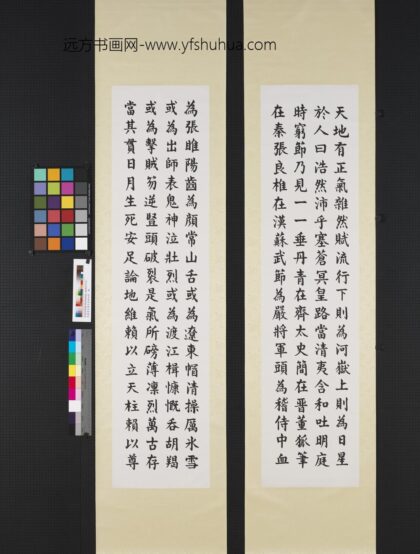 远方书画网-www.yfshuhua.com
天地有正氣雜然賦流行下則為河嶽上則為日星
於人曰浩然沛乎塞蒼冥皇路當清夷含和吐明庭
時窮節乃見一一垂丹青在齊太史簡在晉董狐筆
在秦張良椎在漢蘇武節為嚴將軍頭為稽侍中血
為張睢陽齒為顏常山舌或為遼東帽清操厲氷雪
或為出師表鬼神泣壯烈或為渡江楫慷慨吞胡羯
或為擊賊笏逆豎頭破裂是氣所磅薄凜烈萬古存
當其貫日月生死安足論地維賴以立天柱賴以尊